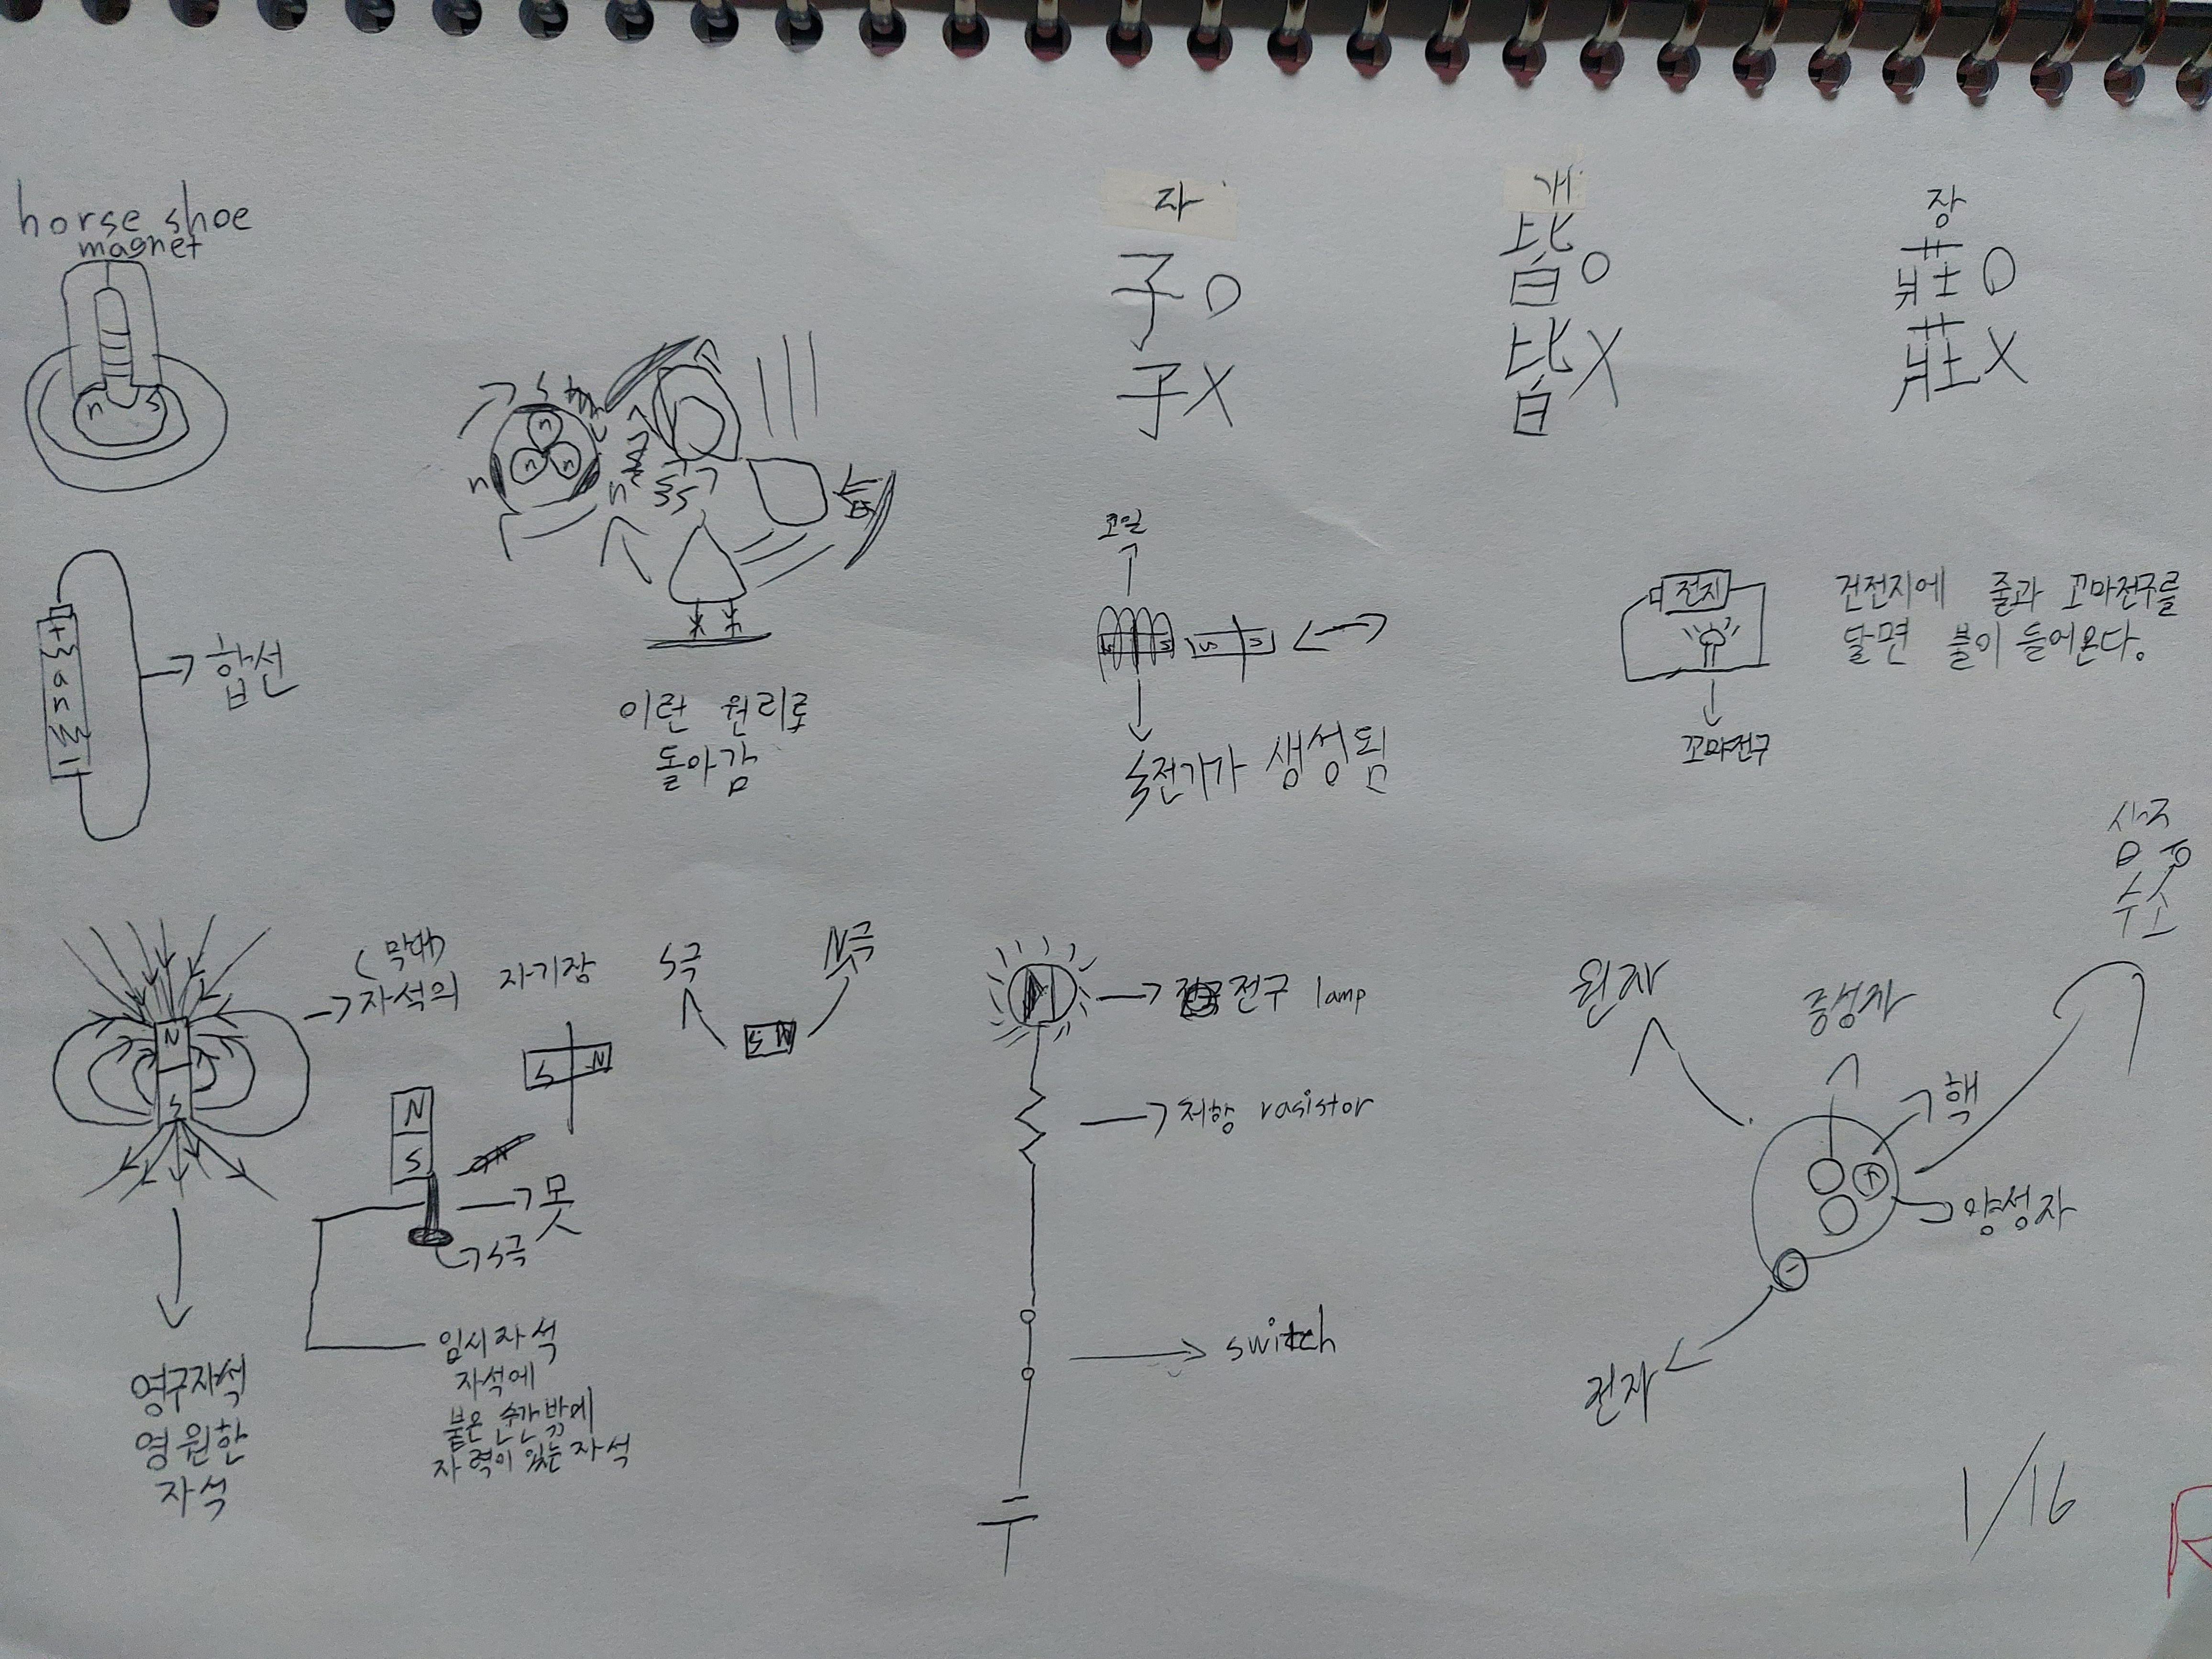 horse shoe
magnet
n s
자
子 O
子 X
개
皆 O
皆 X
장
莊 O
莊 X
S
n
n
n
n
n
이런 원리로
돌아감
코일
전기가 생성됨
전지
꼬마전구
건전지에 줄과 꼬마전구를
달면 불이 들어온다.
합선
(막대)
자석의 자기장
N
S
영구자석
영원한
자석
S극
N극
S N
S N
N
S
못
S극
임시자석
자석에
붙은 순간 밖에
자력이 있는 자석
전구 lamp
저항 rasistor
switch
삼중
수소
원자
중성자
핵
+
양성자
-
전자
1/16
R